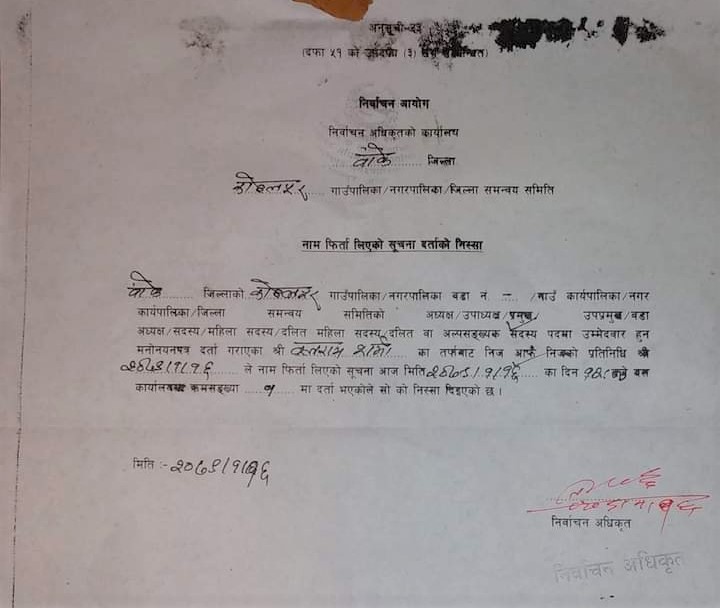 अनुसूची-२३
(दफा ५१ को उपदफा (३) सँग सम्बन्धित)
निर्वाचन आयोग
निर्वाचन अधिकृतको कार्यालय
बाँके जिल्ला
कोहलपुर गाउँपालिका/नगरपालिका/जिल्ला समन्वय समिति
नाम फिर्ता लिएको सूचना दर्ताको निस्सा
बाँके जिल्लाको कोहलपुर गाउँपालिका/नगरपालिका वडा नं - /गाउँ कार्यपालिका/नगर
कार्यपालिका/जिल्ला समन्वय समितिको अध्यक्ष/उपाध्यक्ष/प्रमुख/ उपप्रमुख/वडा
अध्यक्ष/सदस्य/महिला सदस्य/दलित महिला सदस्य/दलित वा अल्पसङ्ख्यक सदस्य पदमा उम्मेदवार हुन
मनोनयनपत्र दर्ता गराएका श्री शर्मा का तर्फबाट निज आफै/निजको प्रतिनिधि श्री
२०७९/१/१६ ले नाम फिर्ता लिएको सूचना आज मिति २०७९/१/१६ का दिन बजे यस
कार्यालयबाट क्रमसङ्ख्या १ मा दर्ता भएकोले सो को निस्सा दिइएको छ।
मिति :- २०७९/१/१६
निर्वाचन अधिकृत
निर्वाचन अधिकृत